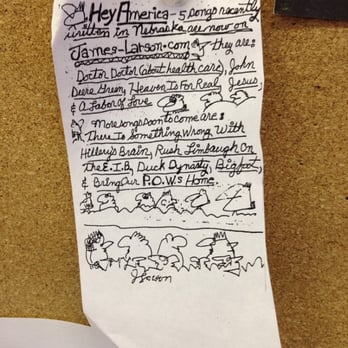 Hey America - 5 songs recently
written in Nebraska are now on
James-Larson.com they are:
Doctor Doctor (about health care), John
Deere Green, Heaven Is For Real, Jesus,
& A Labor of Love
More songs soon to come are:
There Is Something Wrong With
Hillery's Brain, Rush Limbaugh On
The E.I.B, Duck Dynasty, Bigfoot,
& Bring Our P.O.W.s Home.
J Larson